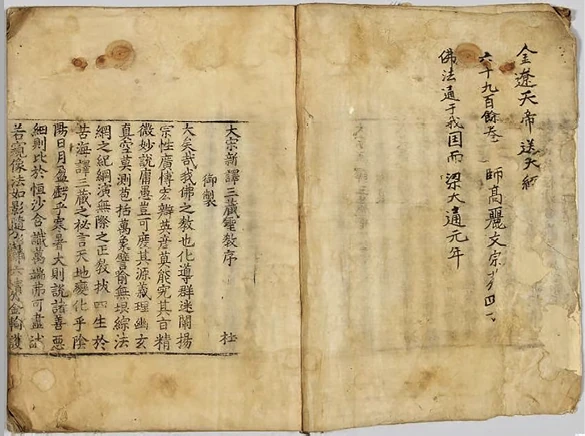 金遼天帝送大
六千九百餘卷 師高麗文宗
佛法通于我国而梁大通元年
大宗新譯三蔵聖教序 杜
御製
大矣哉我佛之教也化導群迷闡揚
宗性廣博宏辯英彦莫能究其旨精
微妙說庸愚豈可度其源義理幽玄
真空莫測包括萬象譬喻無垠綜法
網之紀綱演無際之正教拔四生於
苦海譯三蔵之秘言天地變化乎陰
陽日月盈虧乎寒暑大則說諸善惡
細則比於恒沙含識萬端弗可盡述
若窺像法如影隨